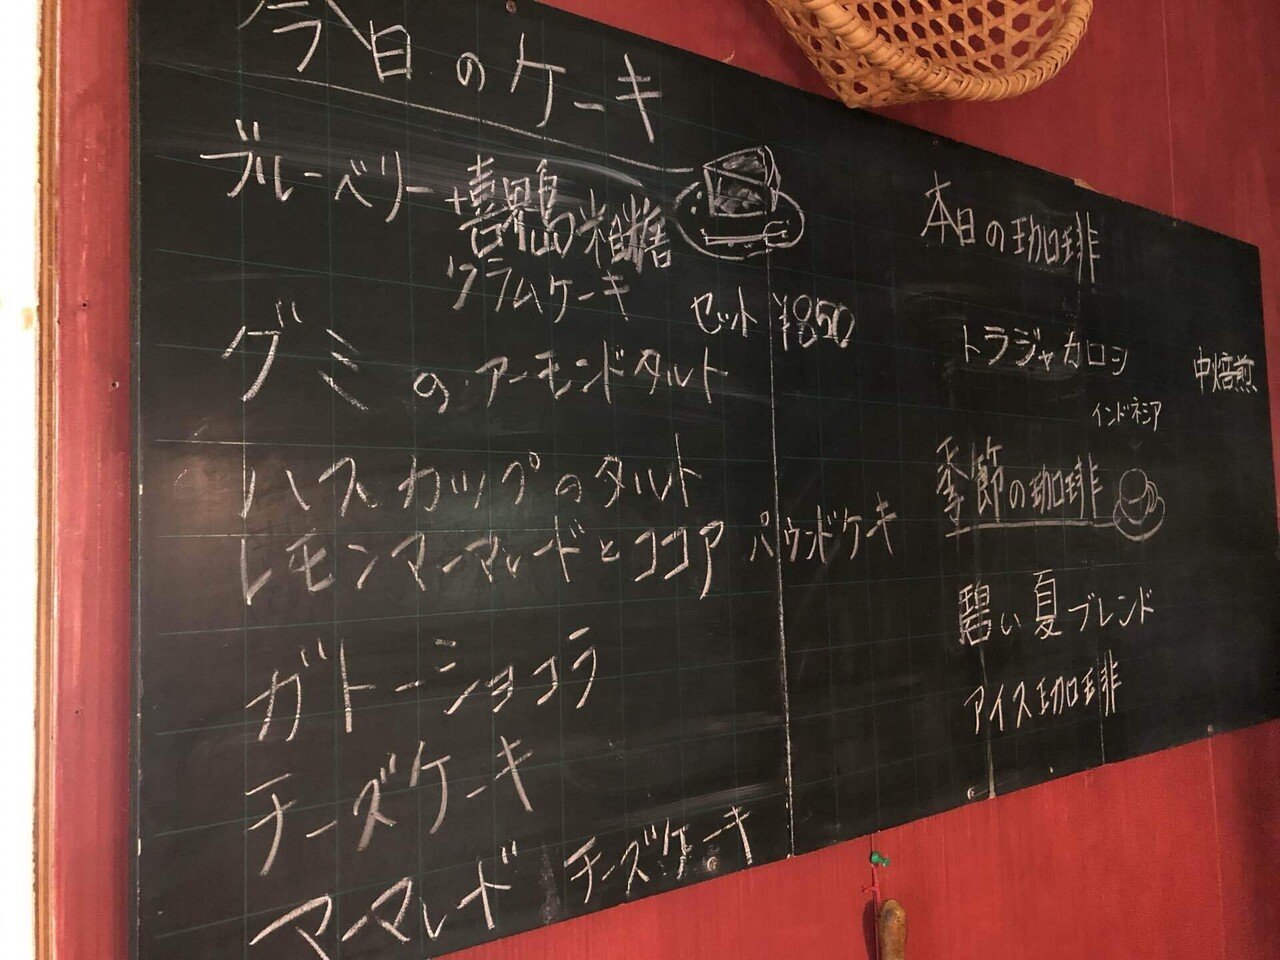 今日のケーキ
ブルーベリー+喜界島粗糖
クラムケーキ
セット ¥850
グミのアーモンドタルト
ハスカップのタルト
レモンマーマレードとココアパウンドケーキ
ガトーショコラ
チーズケーキ
マーマレード チーズケーキ
本日の珈琲
トラジャカロシ 中焙煎
インドネシア
季節の珈琲
碧い夏ブレンド
アイス珈琲